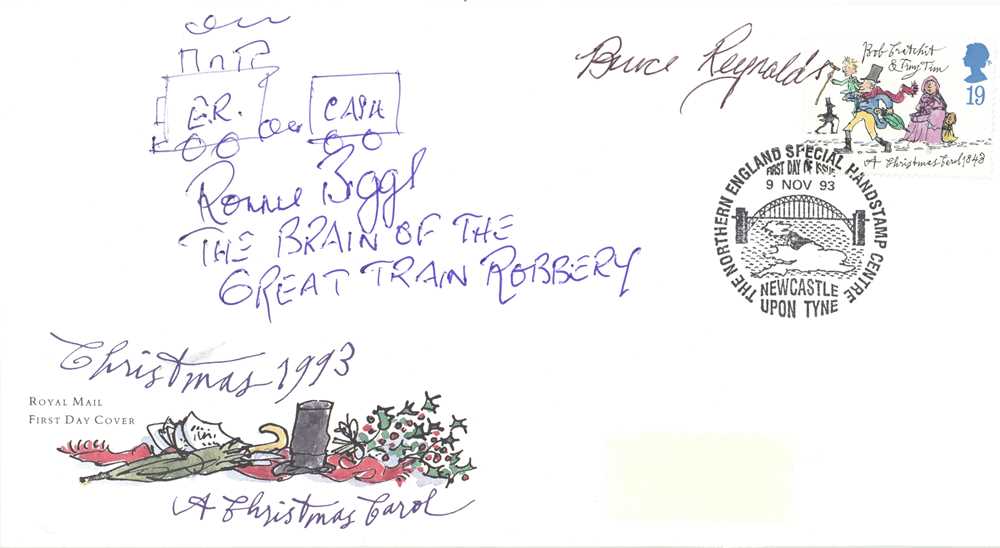 E.R.
CASH
Ronnie Biggs
THE BRAIN OF THE
GREAT TRAIN ROBBERY
Bruce Reynolds
Bob Cratchit
& Tiny Tim
19
A Christmas Carol 1843
THE NORTHERN ENGLAND SPECIAL HANDSTAMP CENTRE
FIRST DAY OF ISSUE
9 NOV 93
NEWCASTLE
UPON TYNE
Christmas 1993
ROYAL MAIL
FIRST DAY COVER
A Christmas Carol